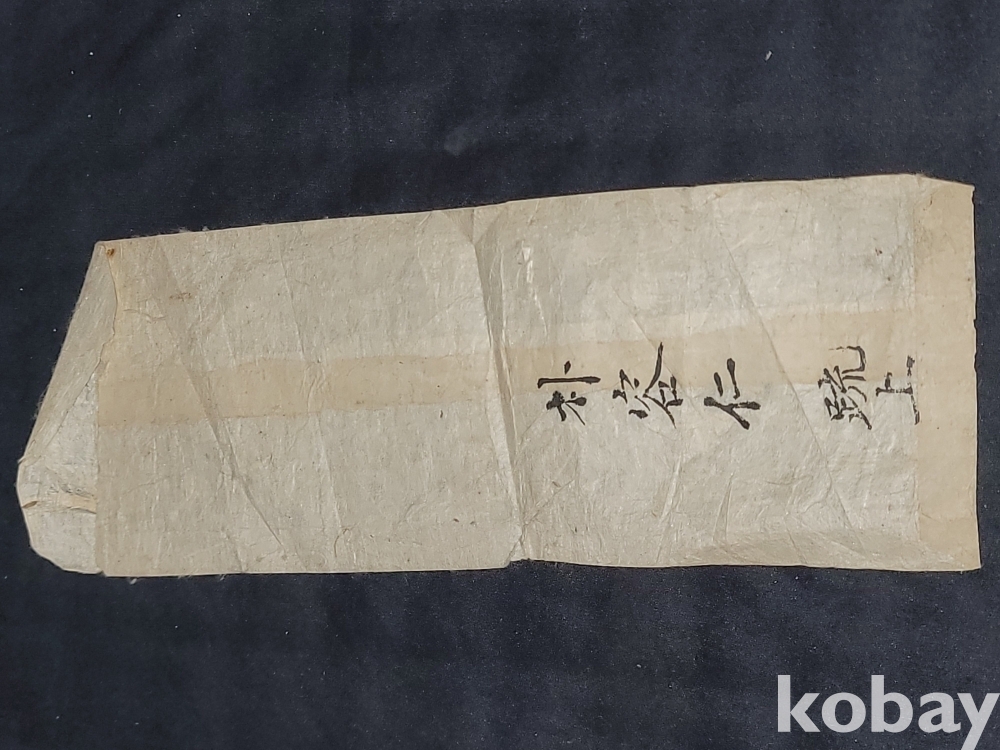 朴容仁 疏上
kobay